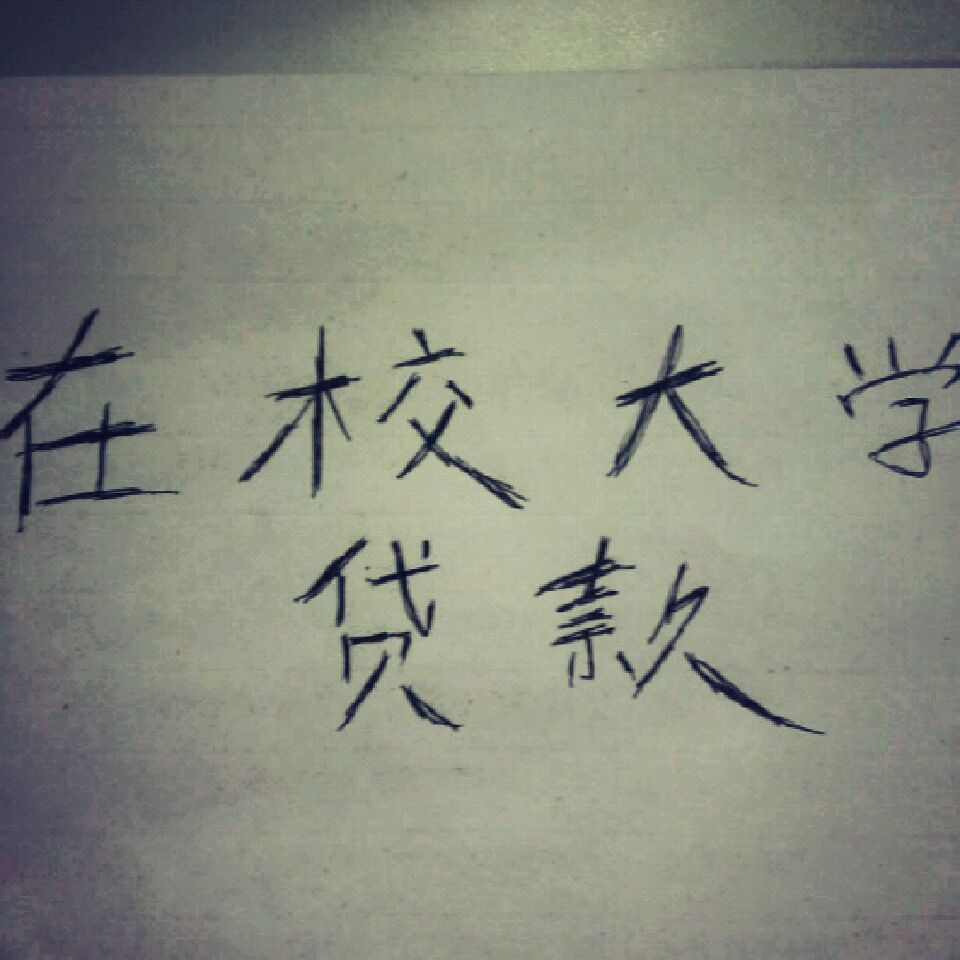 在校大学
贷款